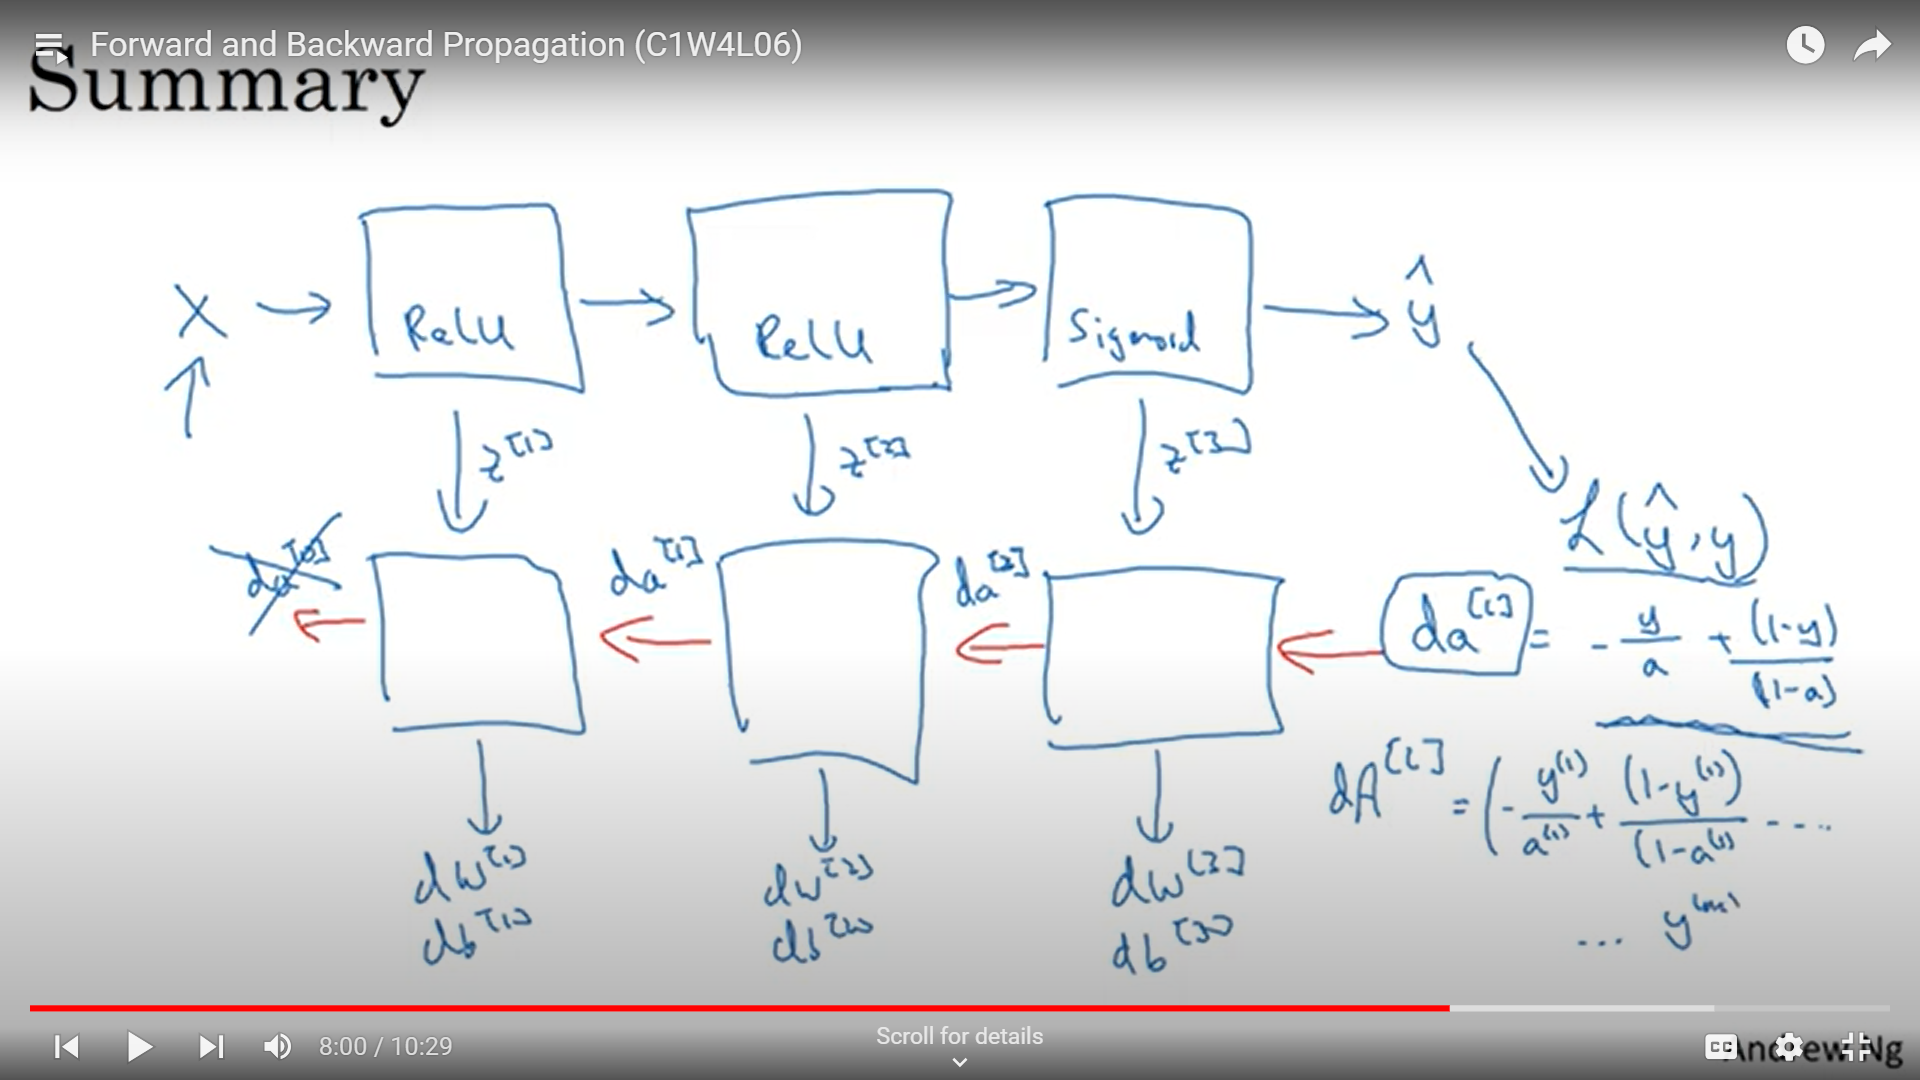 Forward and Backward Propagation (C1W4L06)
Summary
X → ReLU → ReLU → Sigmoid → ŷ
↑
z^[1] z^[2] z^[3]
L(ŷ, y)
da^[0] da^[1] da^[2] da^[L] = - y/a + (1-y)/(1-a)
dA^[L] = (- y^(1)/a^(1) + (1-y^(1))/(1-a^(1) ....
dW^[1] dW^[2] dW^[3]
db^[1] db^[2] db^[3]
... y^(m)
8:00 / 10:29
Scroll for details
CC
Andrew Ng